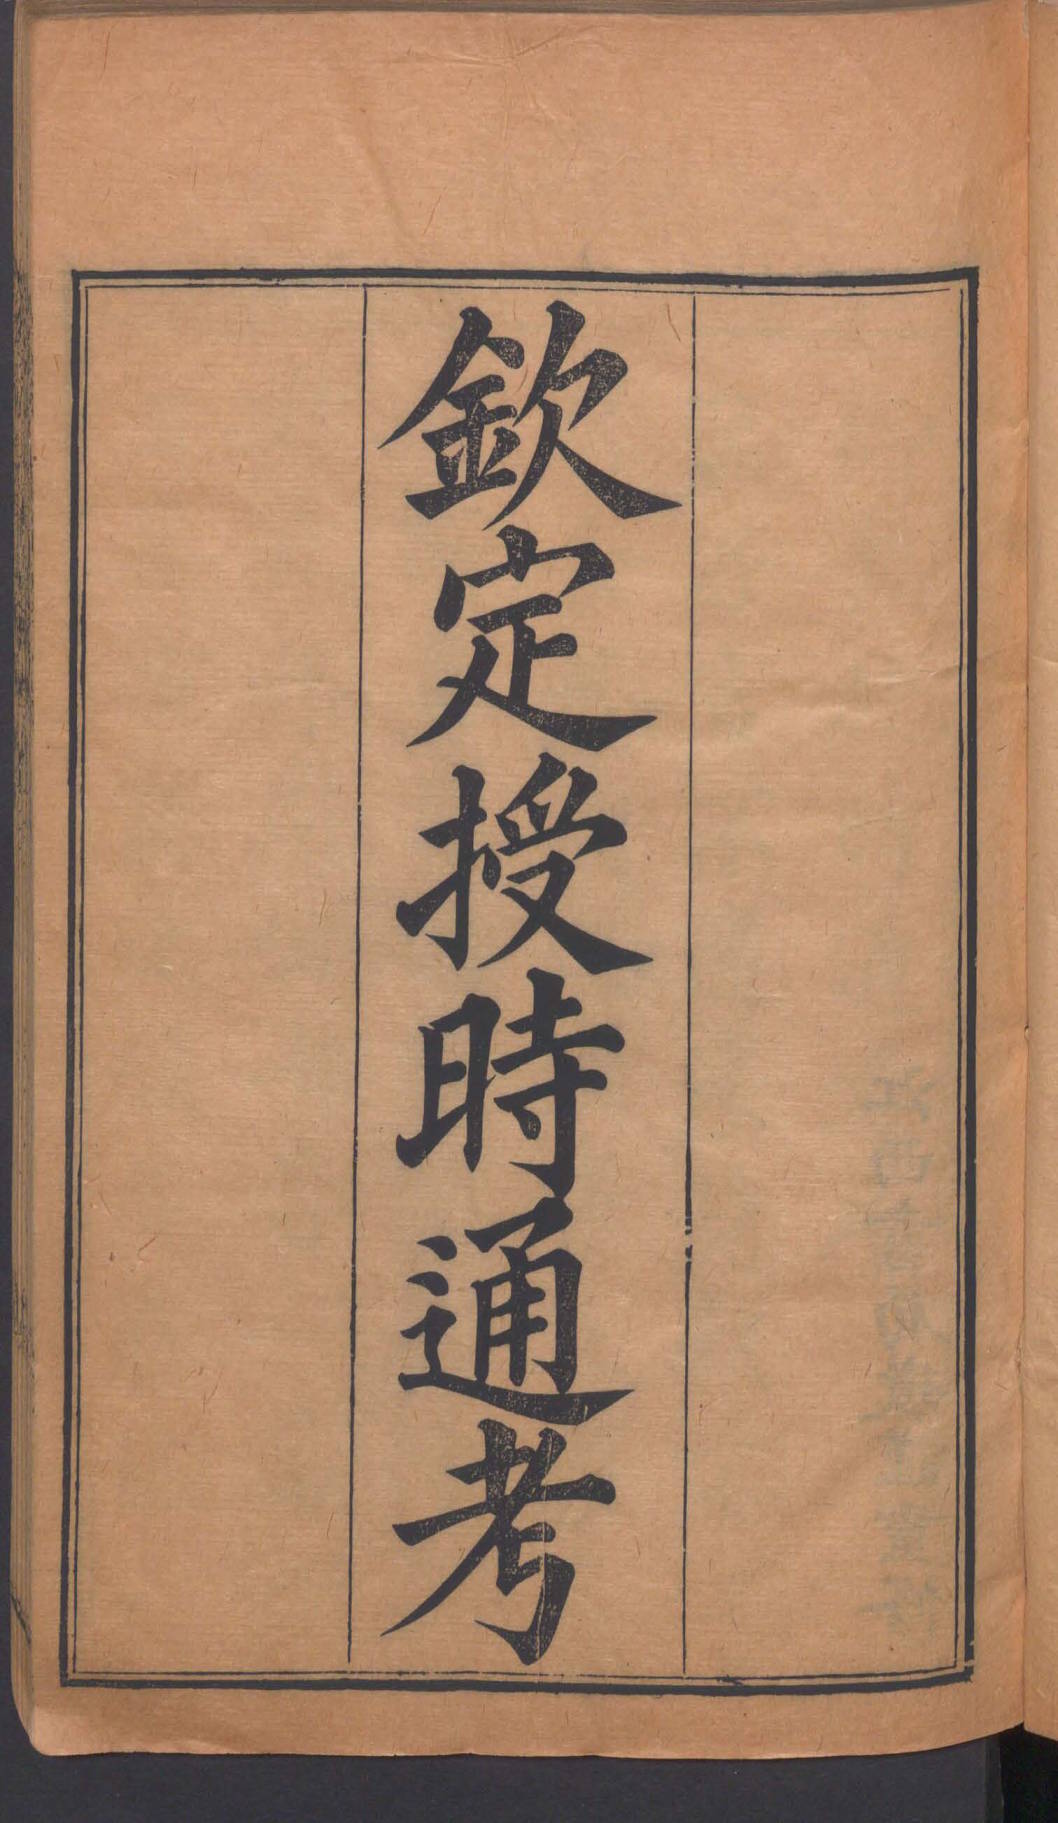 欽定授時通考